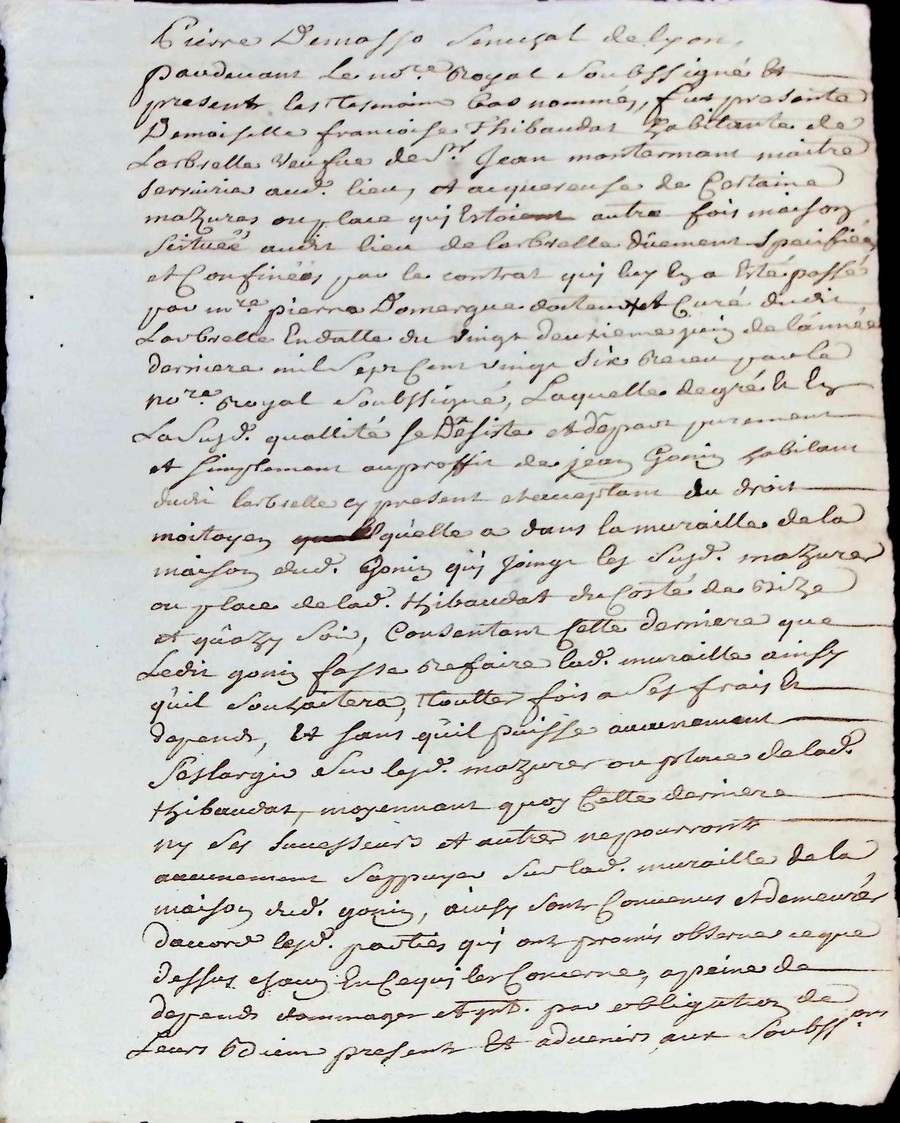 Pierre Demasso Senechal de lyon,
pardevant le no.re Royal Soubssigné Et
present les tesmoins bas nommés, fut presente
Demoiselle francoise Thibaudat habitante de
Larbrelle veufve de S.r Jean montermant maitre
serrurie aud. lieu, et acquereuse de Certaine
mazures ou place quj Estoient autre fois maison
Scituéé audit lieu de larbrelle dûement Speciffiéés
et Confinéés par le contrat quj luy En a Esté passé
par m.re pierre Domergue docteur et Curé dudit
Larbrelle En datte du vingt deuxieme juin de l'année
derniere mil Sept Cent vingt Six Receu par le
no.re Royal Soubssigné, Laquelle de gré Et En
La Susd. quallité se Désiste et départ purement
et Simplement au proffit de jean Gonin habitant
dudit larbrelle cy present et acceptant du droit
moitoyen qu'elle a dans la muraille de la
maison dud. Gonin quj Joingt les Susd. mazures
ou place de lad. thibaudat du Costé de Bize
et quazy Soir, Consentant Cette derniere que
Ledit gonin fasse Refaire lad. muraille ainsy
qu'il Souhaitera, touttes fois a Ses frais Et
depends, Et Sans qu'il puisse aucunement
S'eslargir Sur lesd. mazures ou place de lad.
thibaudat, moyennant quoy Cette derniere
ny Ses Successeurs et autres ne pourronts
aucunement S'appuyer Sur lad. muraille de la
maison dud. gonin, ainsy Sont Convenus et demeurés
d'accord lesd. parties quj ont promis observer ce que
dessus chacun En ce quj les Concerne, a peine de
depends dommages et int. par obligation de
Leurs Biens present Et advenirs aux Soubss.ons